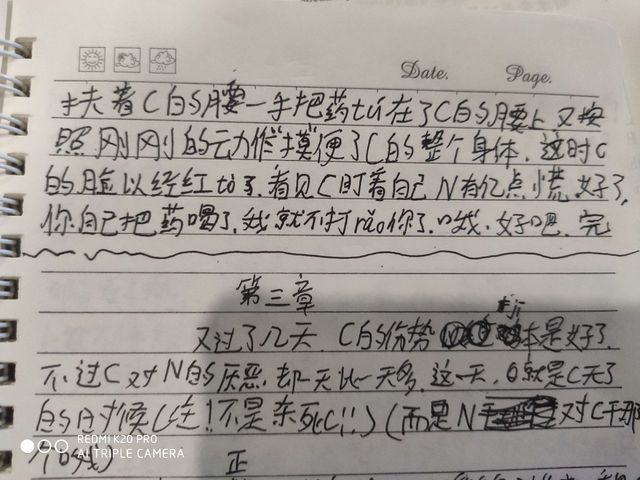 Date. Page.
扶着C的腰一手把药tú在了C的腰上又按
照刚刚的动作"摸"便了C的整个身体.这时C
的脸以经红tòu了.看见C盯着自己N有亿点慌.好了,
你自己把药喝了,我就不打rǎo你了.哦.好吧.完
第三章
又过了几天.C的伤势本是好了.
不过C对N的厌恶.却一天比一天多.这一天,就是C无了
的时候(注!不是杀死C!!)(而是N对C干那
个哦)
正
REDMI K20 PRO
AI TRIPLE CAMERA